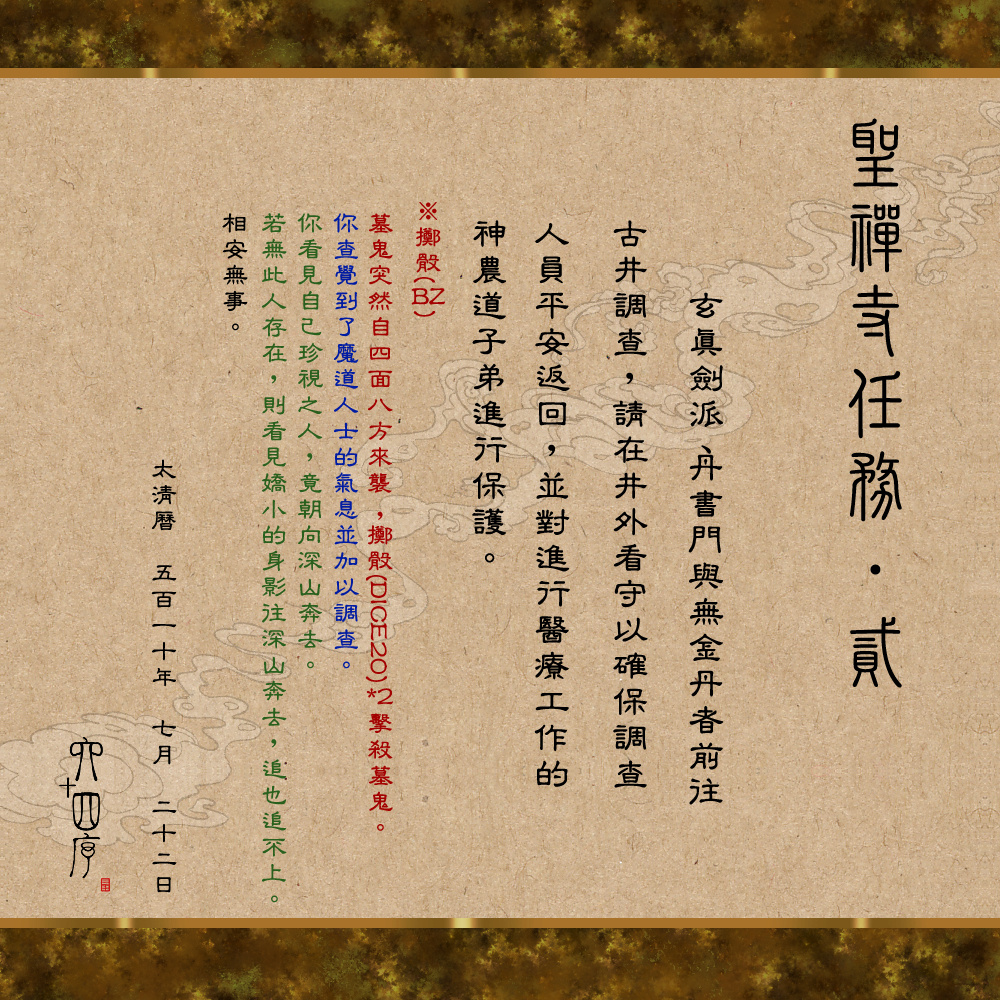 聖禪寺任務・貳
玄真劍派、丹書門與無金丹者前往
古井調查，請在井外看守以確保調查
人員平安返回，並對進行醫療工作的
神農道子弟進行保護。
※擲骰(BZ)
墓鬼突然自四面八方來襲，擲骰(DICE20)*2擊殺墓鬼。
你查覺到了魔道人士的氣息並加以調查。
你看見自己珍視之人，竟朝向深山奔去。
若無此人存在，則看見嬌小的身影往深山奔去，追也追不上。
相安無事。
太清曆 五百一十年 七月 二十二日
六十四序